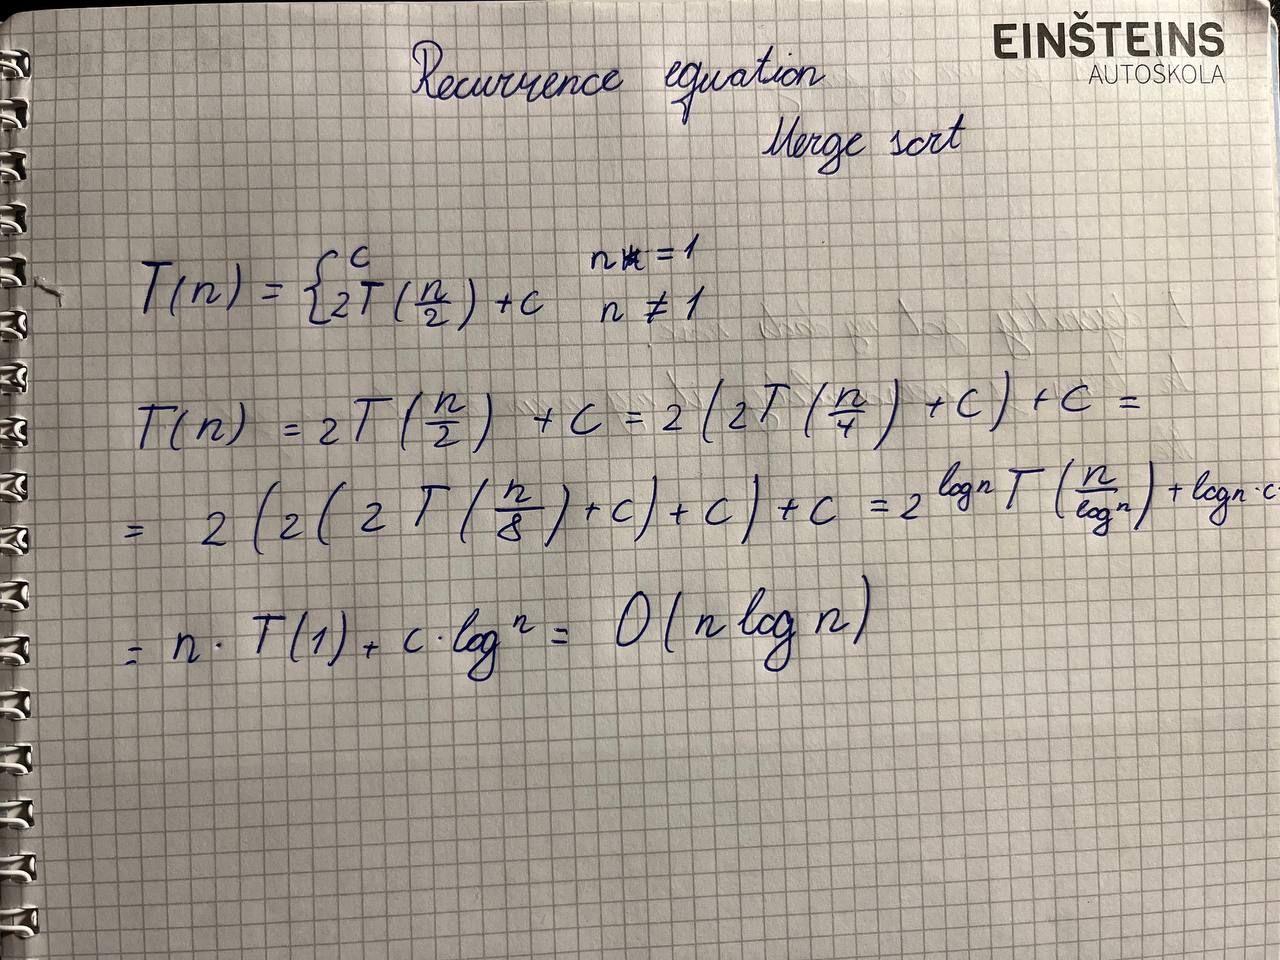 EINŠTEINS
AUTOSKOLA
Recurrence equation
Merge sort
T(n) = { c n = 1
2T(n/2) + c n ≠ 1
T(n) = 2T(n/2) + c = 2(2T(n/4) + c) + c =
= 2(2(2T(n/8) + c) + c) + c = 2^logn T(n/logn) + logn·c
= n · T(1) + c · log n = O(n log n)